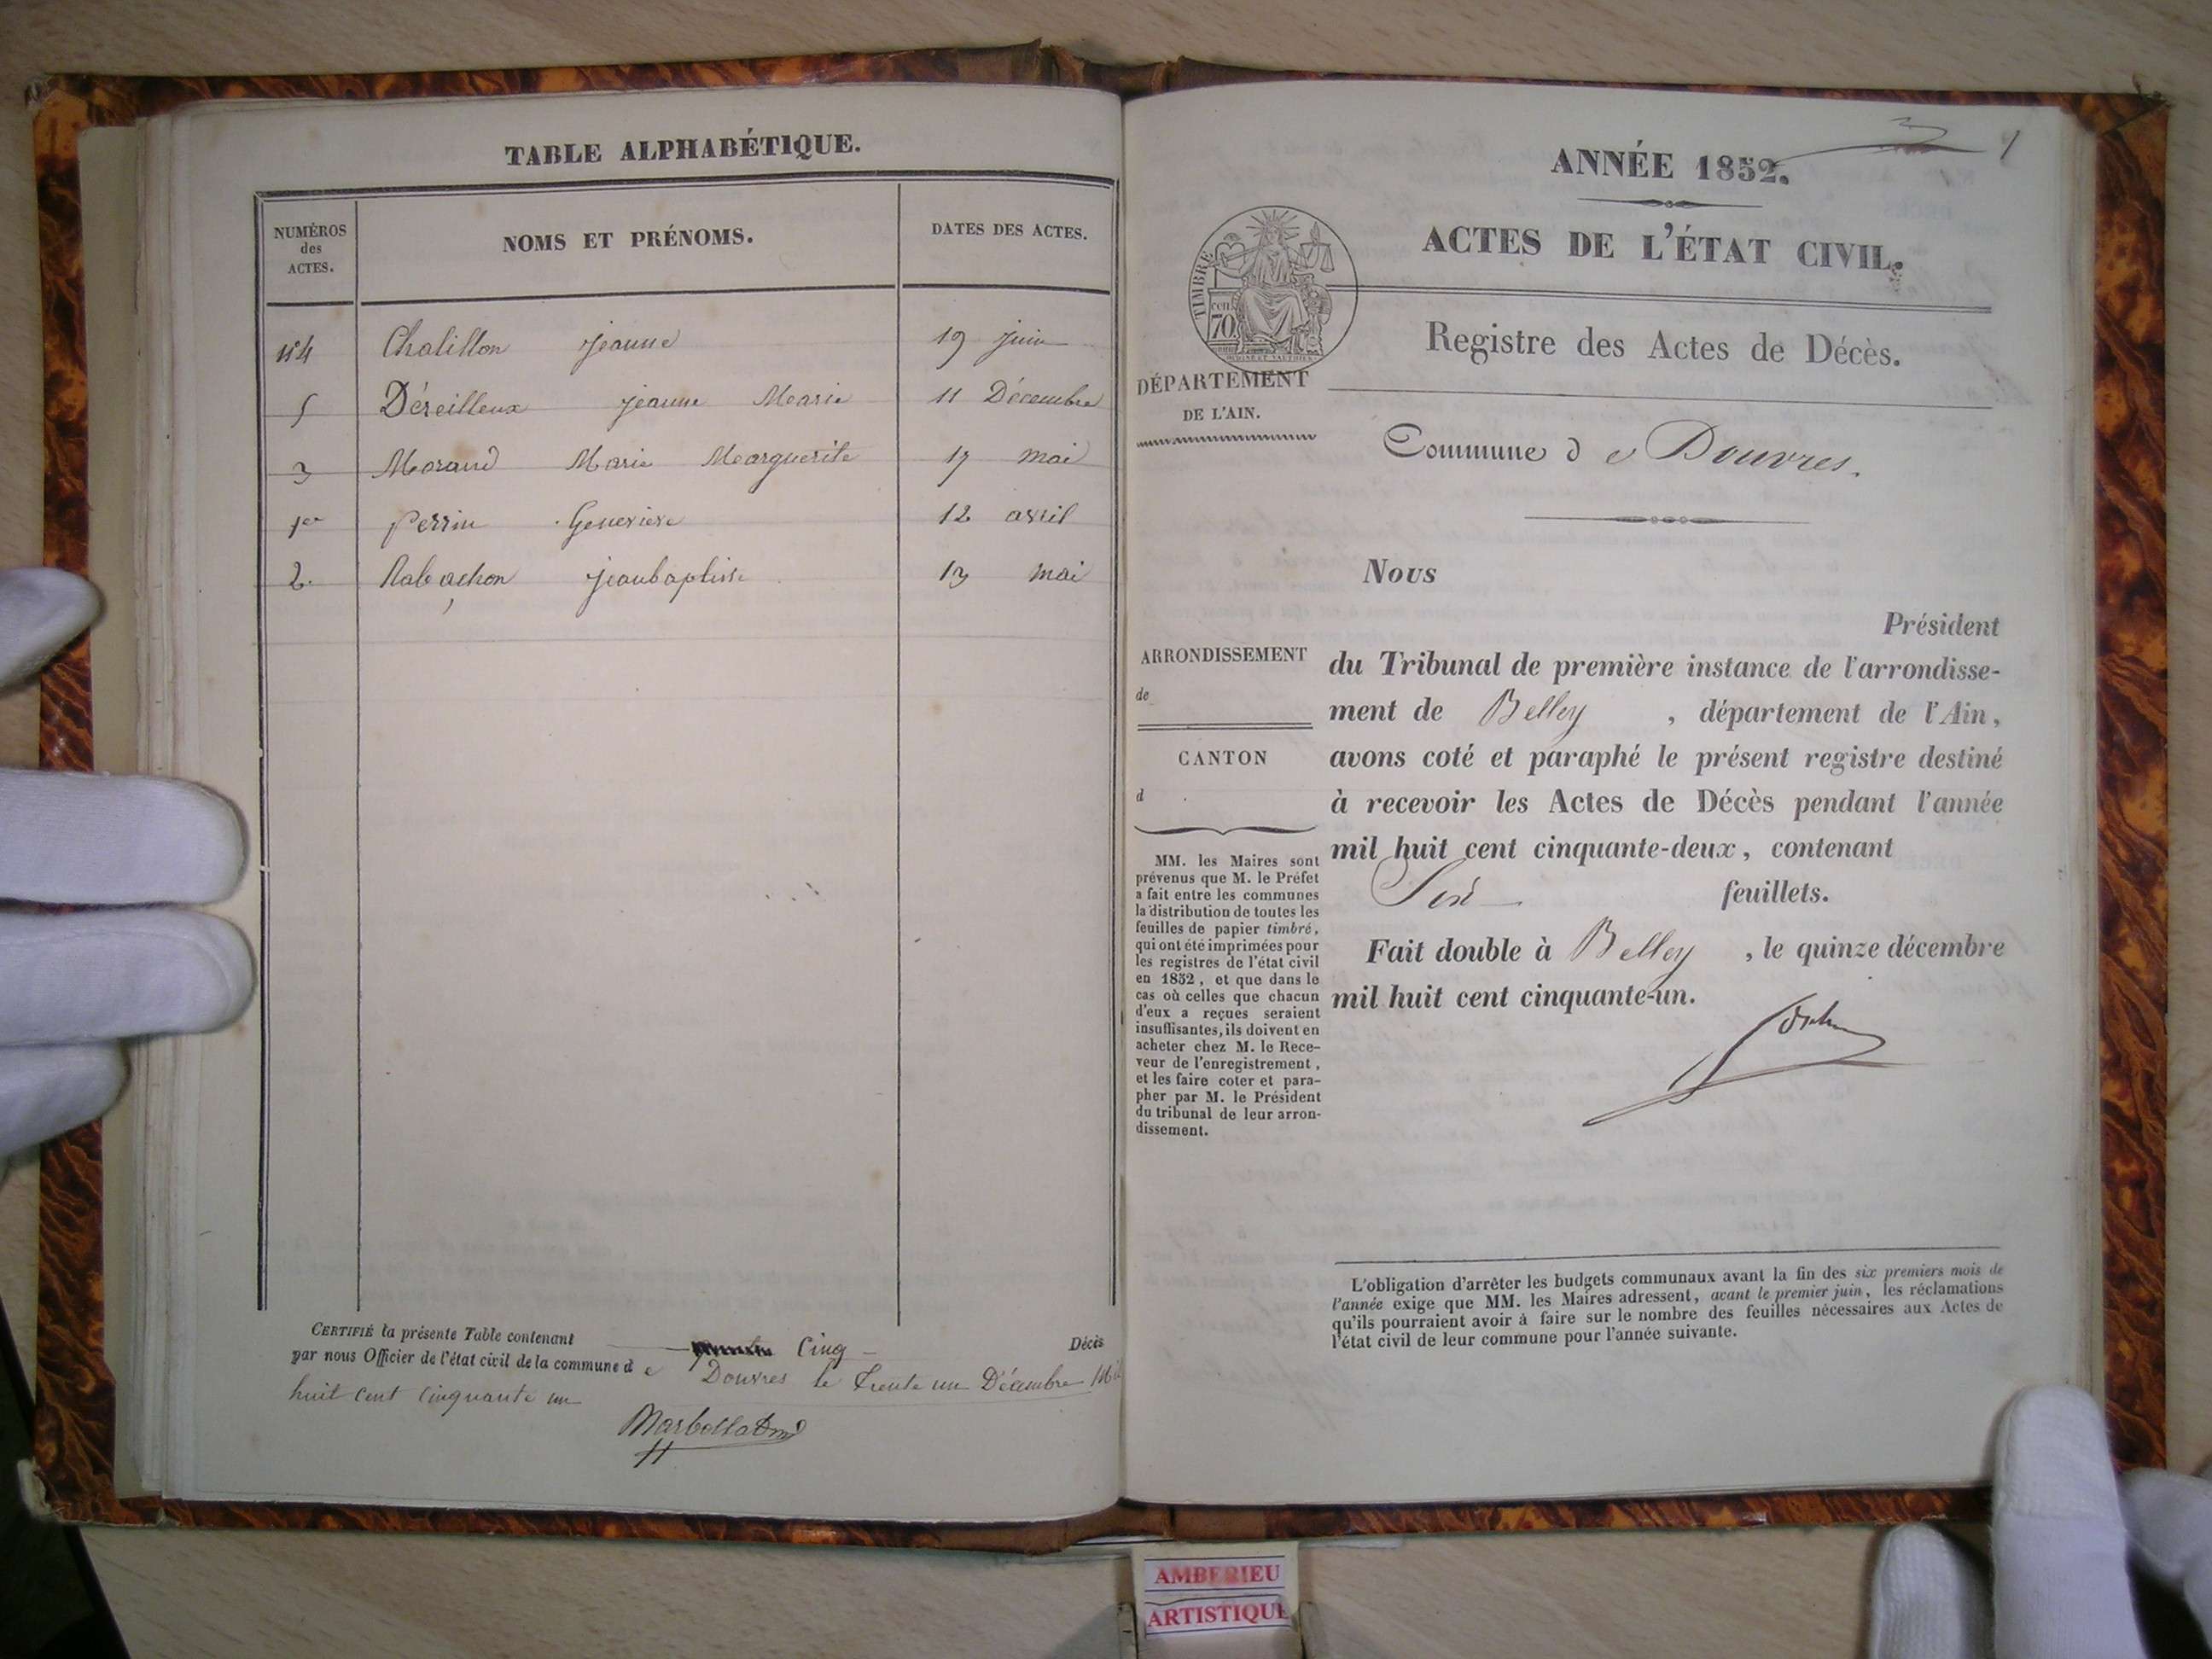 TABLE ALPHABÉTIQUE.
NUMÉROS des ACTES.
NOMS ET PRÉNOMS.
DATES DES ACTES.
n°4 Chalillon jeanne 19 juin
5 Déreilleux jeanne Marie 11 Décembre
3 Morand Marie Marguerite 17 mai
1er Perrin Genevieve 12 avril
2. jeanbaptiste 13 mai
CERTIFIÉ la présente Table contenant Cinq Décès
par nous Officier de l'état civil de la commune d e Douvres le Trente un Décembre Mil
huit cent Cinquante un
ANNÉE 1852.
ACTES DE L'ÉTAT CIVIL.
TIMBRE
70
Registre des Actes de Décès.
DÉPARTEMENT
DE L'AIN.
Commune d e Douvres.
Nous
Président
du Tribunal de première instance de l'arrondisse-
ment de Belley , département de l'Ain,
avons coté et paraphé le présent registre destiné
à recevoir les Actes de Décès pendant l'année
mil huit cent cinquante-deux, contenant
feuillets.
Fait double à Belley , le quinze décembre
mil huit cent cinquante-un.
ARRONDISSEMENT
de
CANTON
d
MM. les Maires sont
prévenus que M. le Préfet
a fait entre les communes
la distribution de toutes les
feuilles de papier timbré,
qui ont été imprimées pour
les registres de l'état civil
en 1852, et que dans le
cas où celles que chacun
d'eux a reçues seraient
insuffisantes, ils doivent en
acheter chez M. le Rece-
veur de l'enregistrement,
et les faire coter et para-
pher par M. le Président
du tribunal de leur arron-
dissement.
L'obligation d'arrêter les budgets communaux avant la fin des six premiers mois de
l'année exige que MM. les Maires adressent, avant le premier juin, les réclamations
qu'ils pourraient avoir à faire sur le nombre des feuilles nécessaires aux Actes de
l'état civil de leur commune pour l'année suivante.
AMBERIEU
ARTISTIQUE